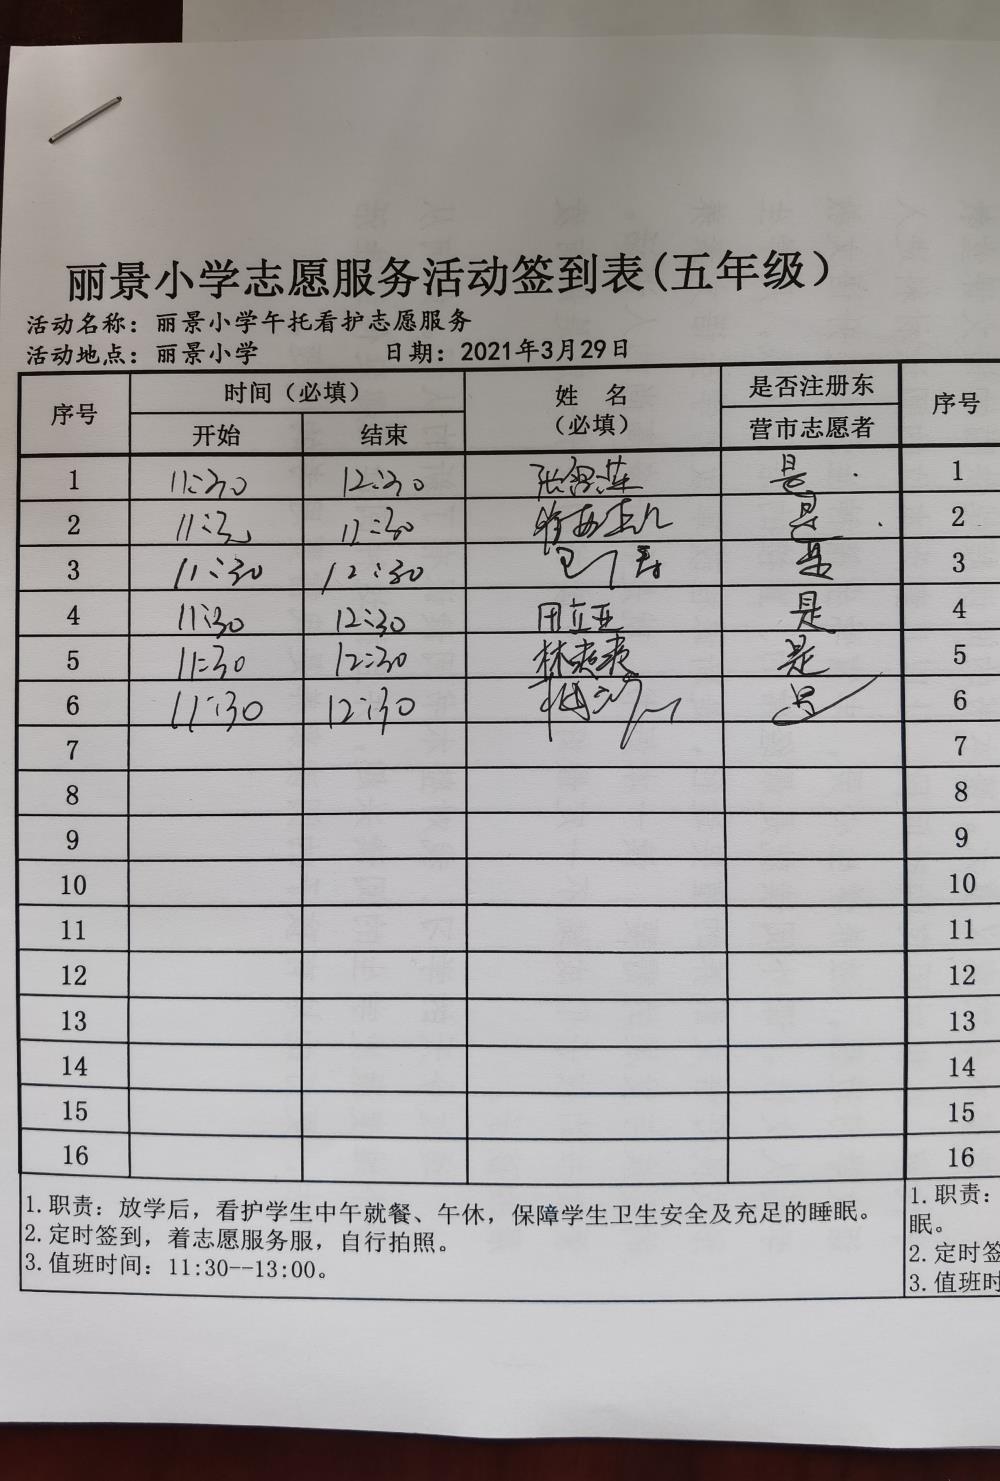 丽景小学志愿服务活动签到表(五年级)
活动名称：丽景小学午托看护志愿服务
活动地点：丽景小学 日期：2021年3月29日
序号 时间（必填） 姓 名 （必填） 是否注册东营市志愿者 序号
开始 结束
1 11:30 12:30 是 1
2 11:30 是 2
3 11:30 12:30 是 3
4 11:30 12:30 田立亚 是 4
5 11:30 12:30 是 5
6 11:30 12:30 是 6
7 7
8 8
9 9
10 10
11 11
12 12
13 13
14 14
15 15
16 16
1.职责：放学后，看护学生中午就餐、午休，保障学生卫生安全及充足的睡眠。
2.定时签到，着志愿服务服，自行拍照。
3.值班时间：11:30--13:00。
1.职责：
眠。
2.定时签
3.值班时